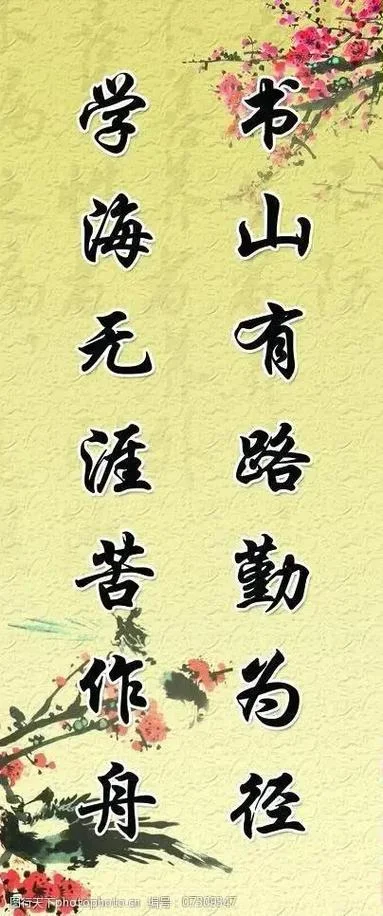 书山有路勤为径
学海无涯苦作舟
图行天下 photophoto.cn 编号：07309347